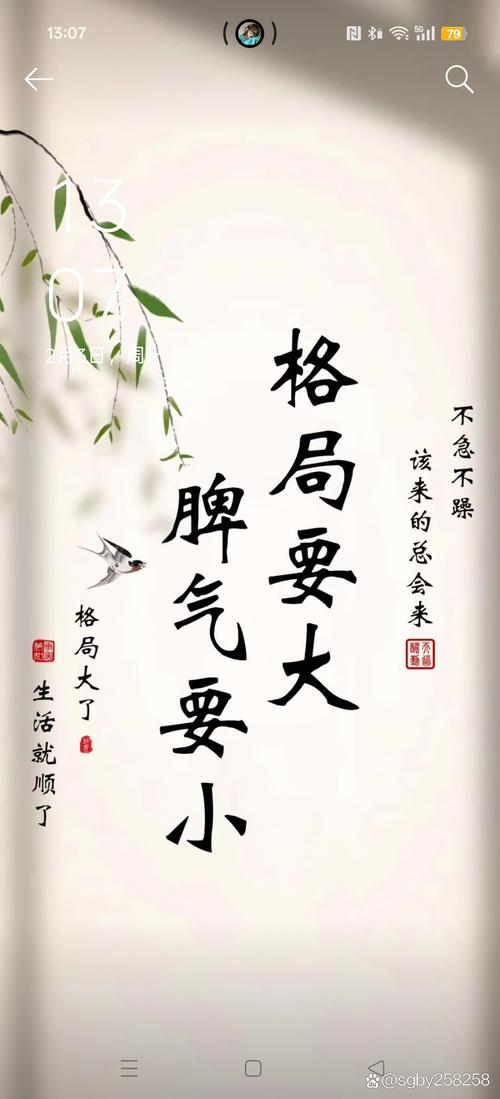 13:07
5G
79
13
07
2月3日，周
不急不躁
该来的总会来
格局要大
脾气要小
格局大了
生活就顺了
@sgby258258